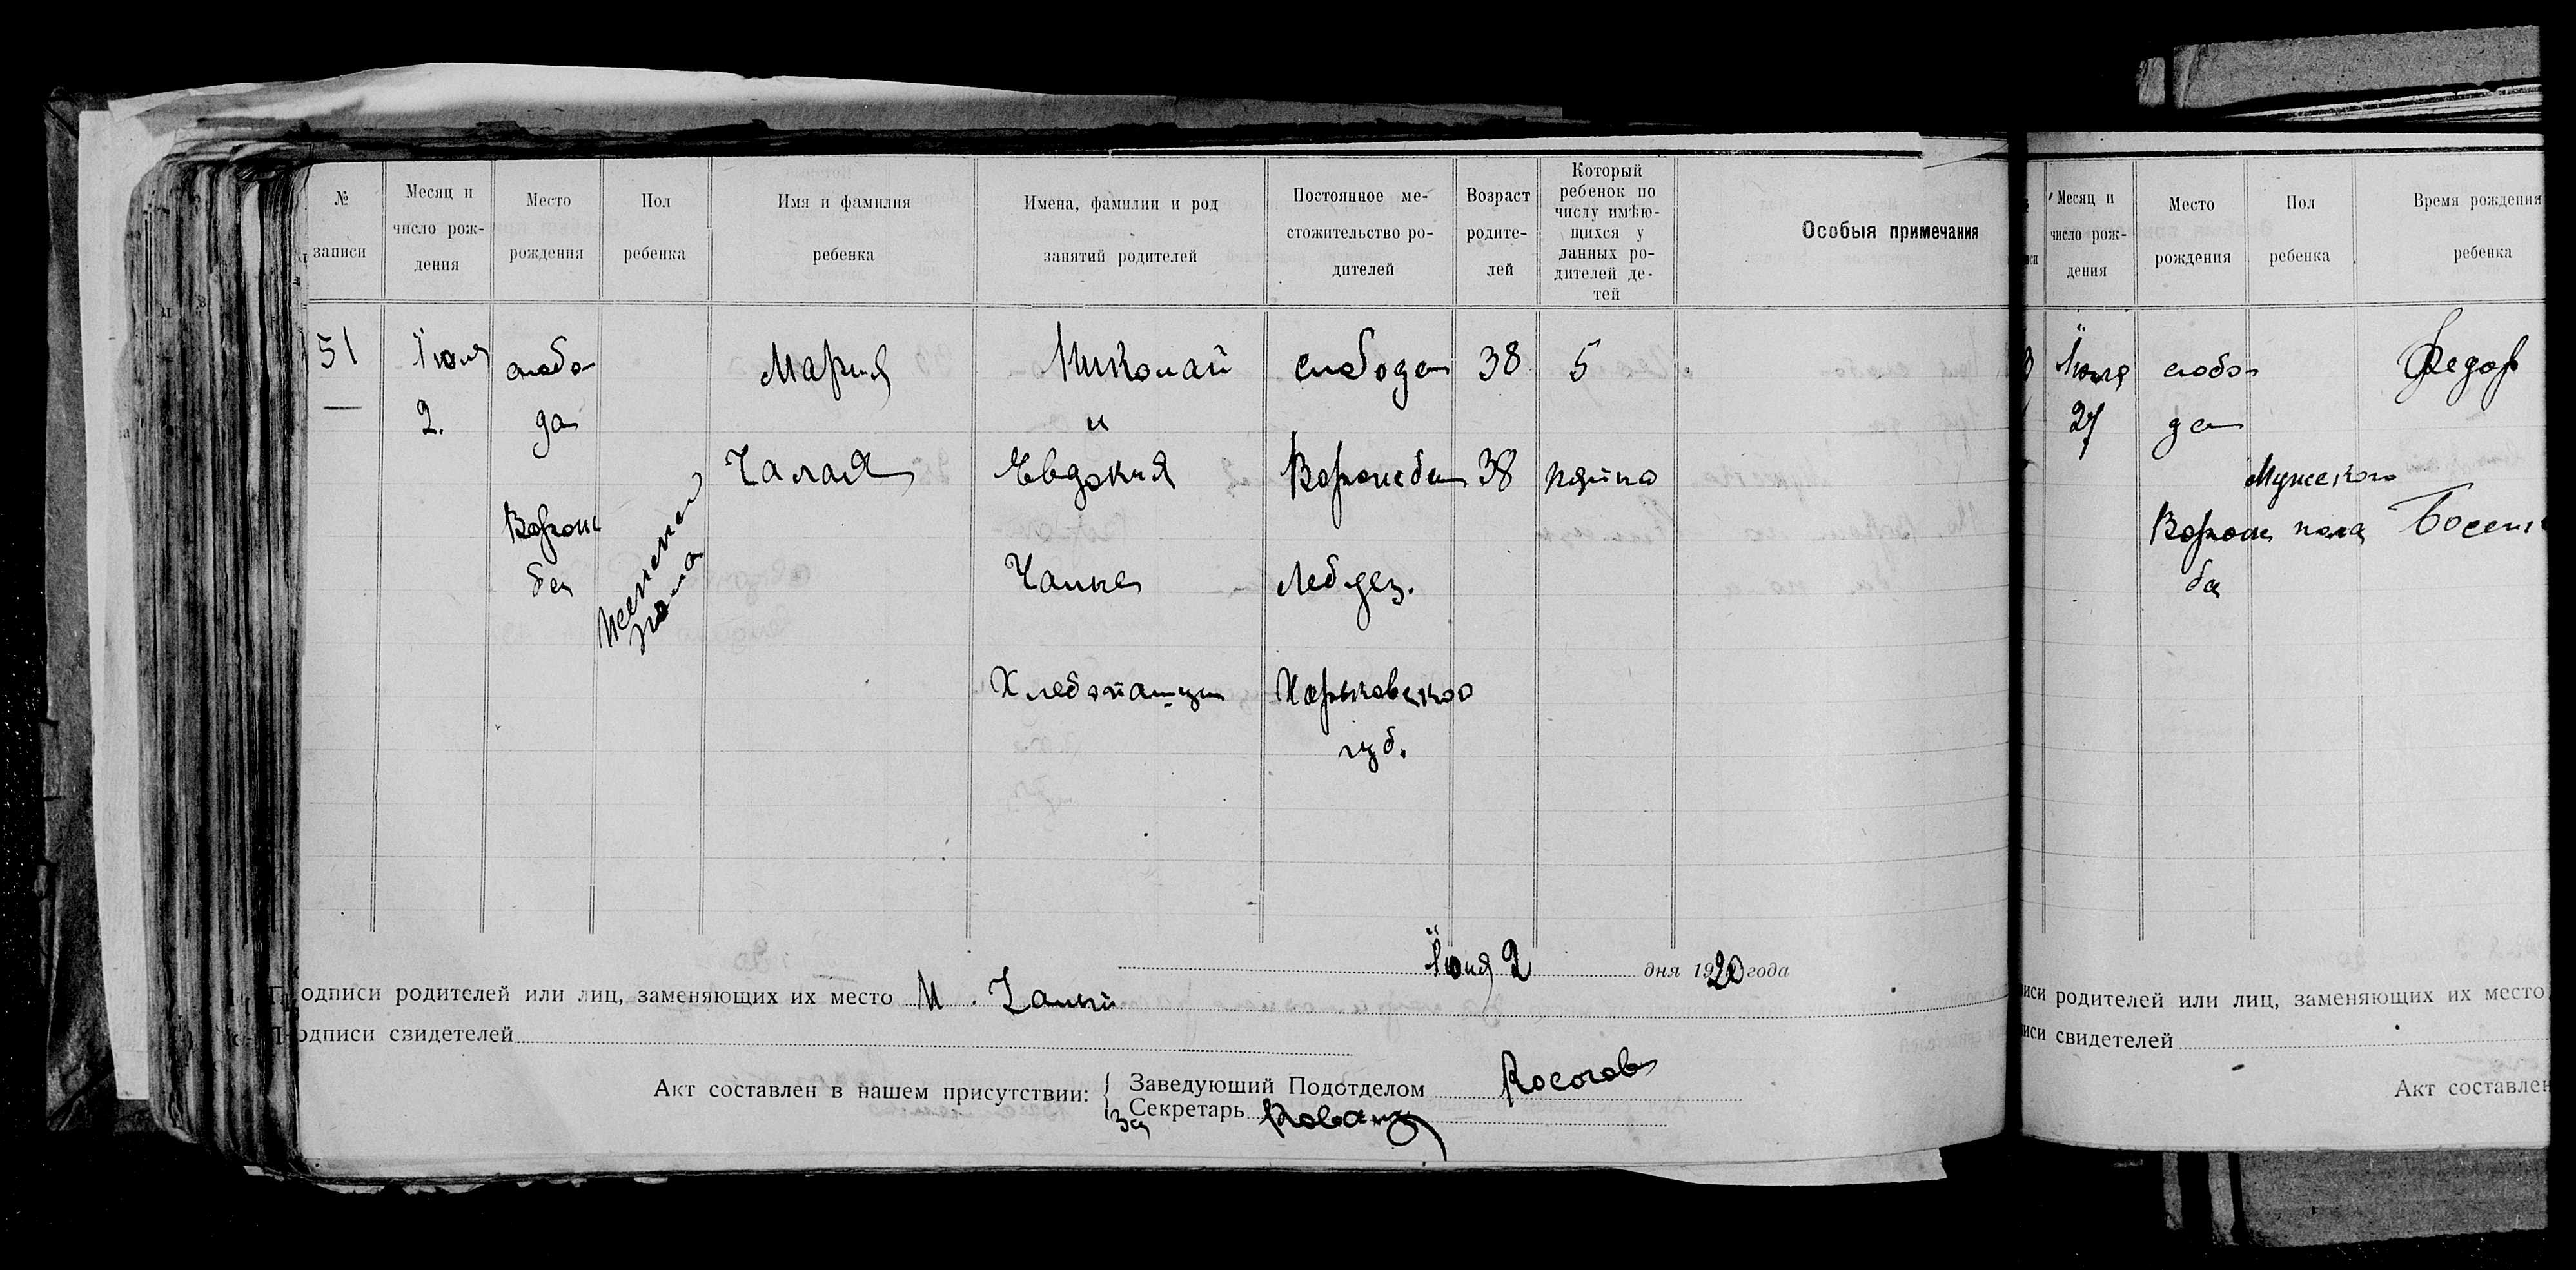 № записи
Месяц и число рож-дения
Место рождения
Пол ребенка
Имя и фамилия ребенка
Имена, фамилии и род занятий родителей
Постоянное ме-стожительство ро-дителей
Возраст родите-лей
Который ребенок по числу имѣю-щихся у данных ро-дителей де-тей
Особыя примечания
51
Июля 2.
слобо-
да
Ворож
ба
Женского
пола
Мария
Чалая
Николай
и
Евдокия
Чалые
Хлебопашцы
слобода
Ворожба
Лебдез.
Харьковской
губ.
38
38
5
пятого
Июня 2 дня 1920 года
Подписи родителей или лиц, заменяющих их место Н. Чалый
Подписи свидетелей
Акт составлен в нашем присутствии:
Заведующий Подотделом
За Секретарь
Месяц и число рож-дения
Место рождения
Пол ребенка
Время рождения
ребенка
Июля 27
слобо-
да
Ворож
ба
Мужского
пола
Федор
писи родителей или лиц, заменяющих их место
писи свидетелей
Акт составлен